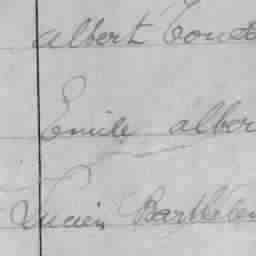 albert
Emile alber
Lucien Barthele